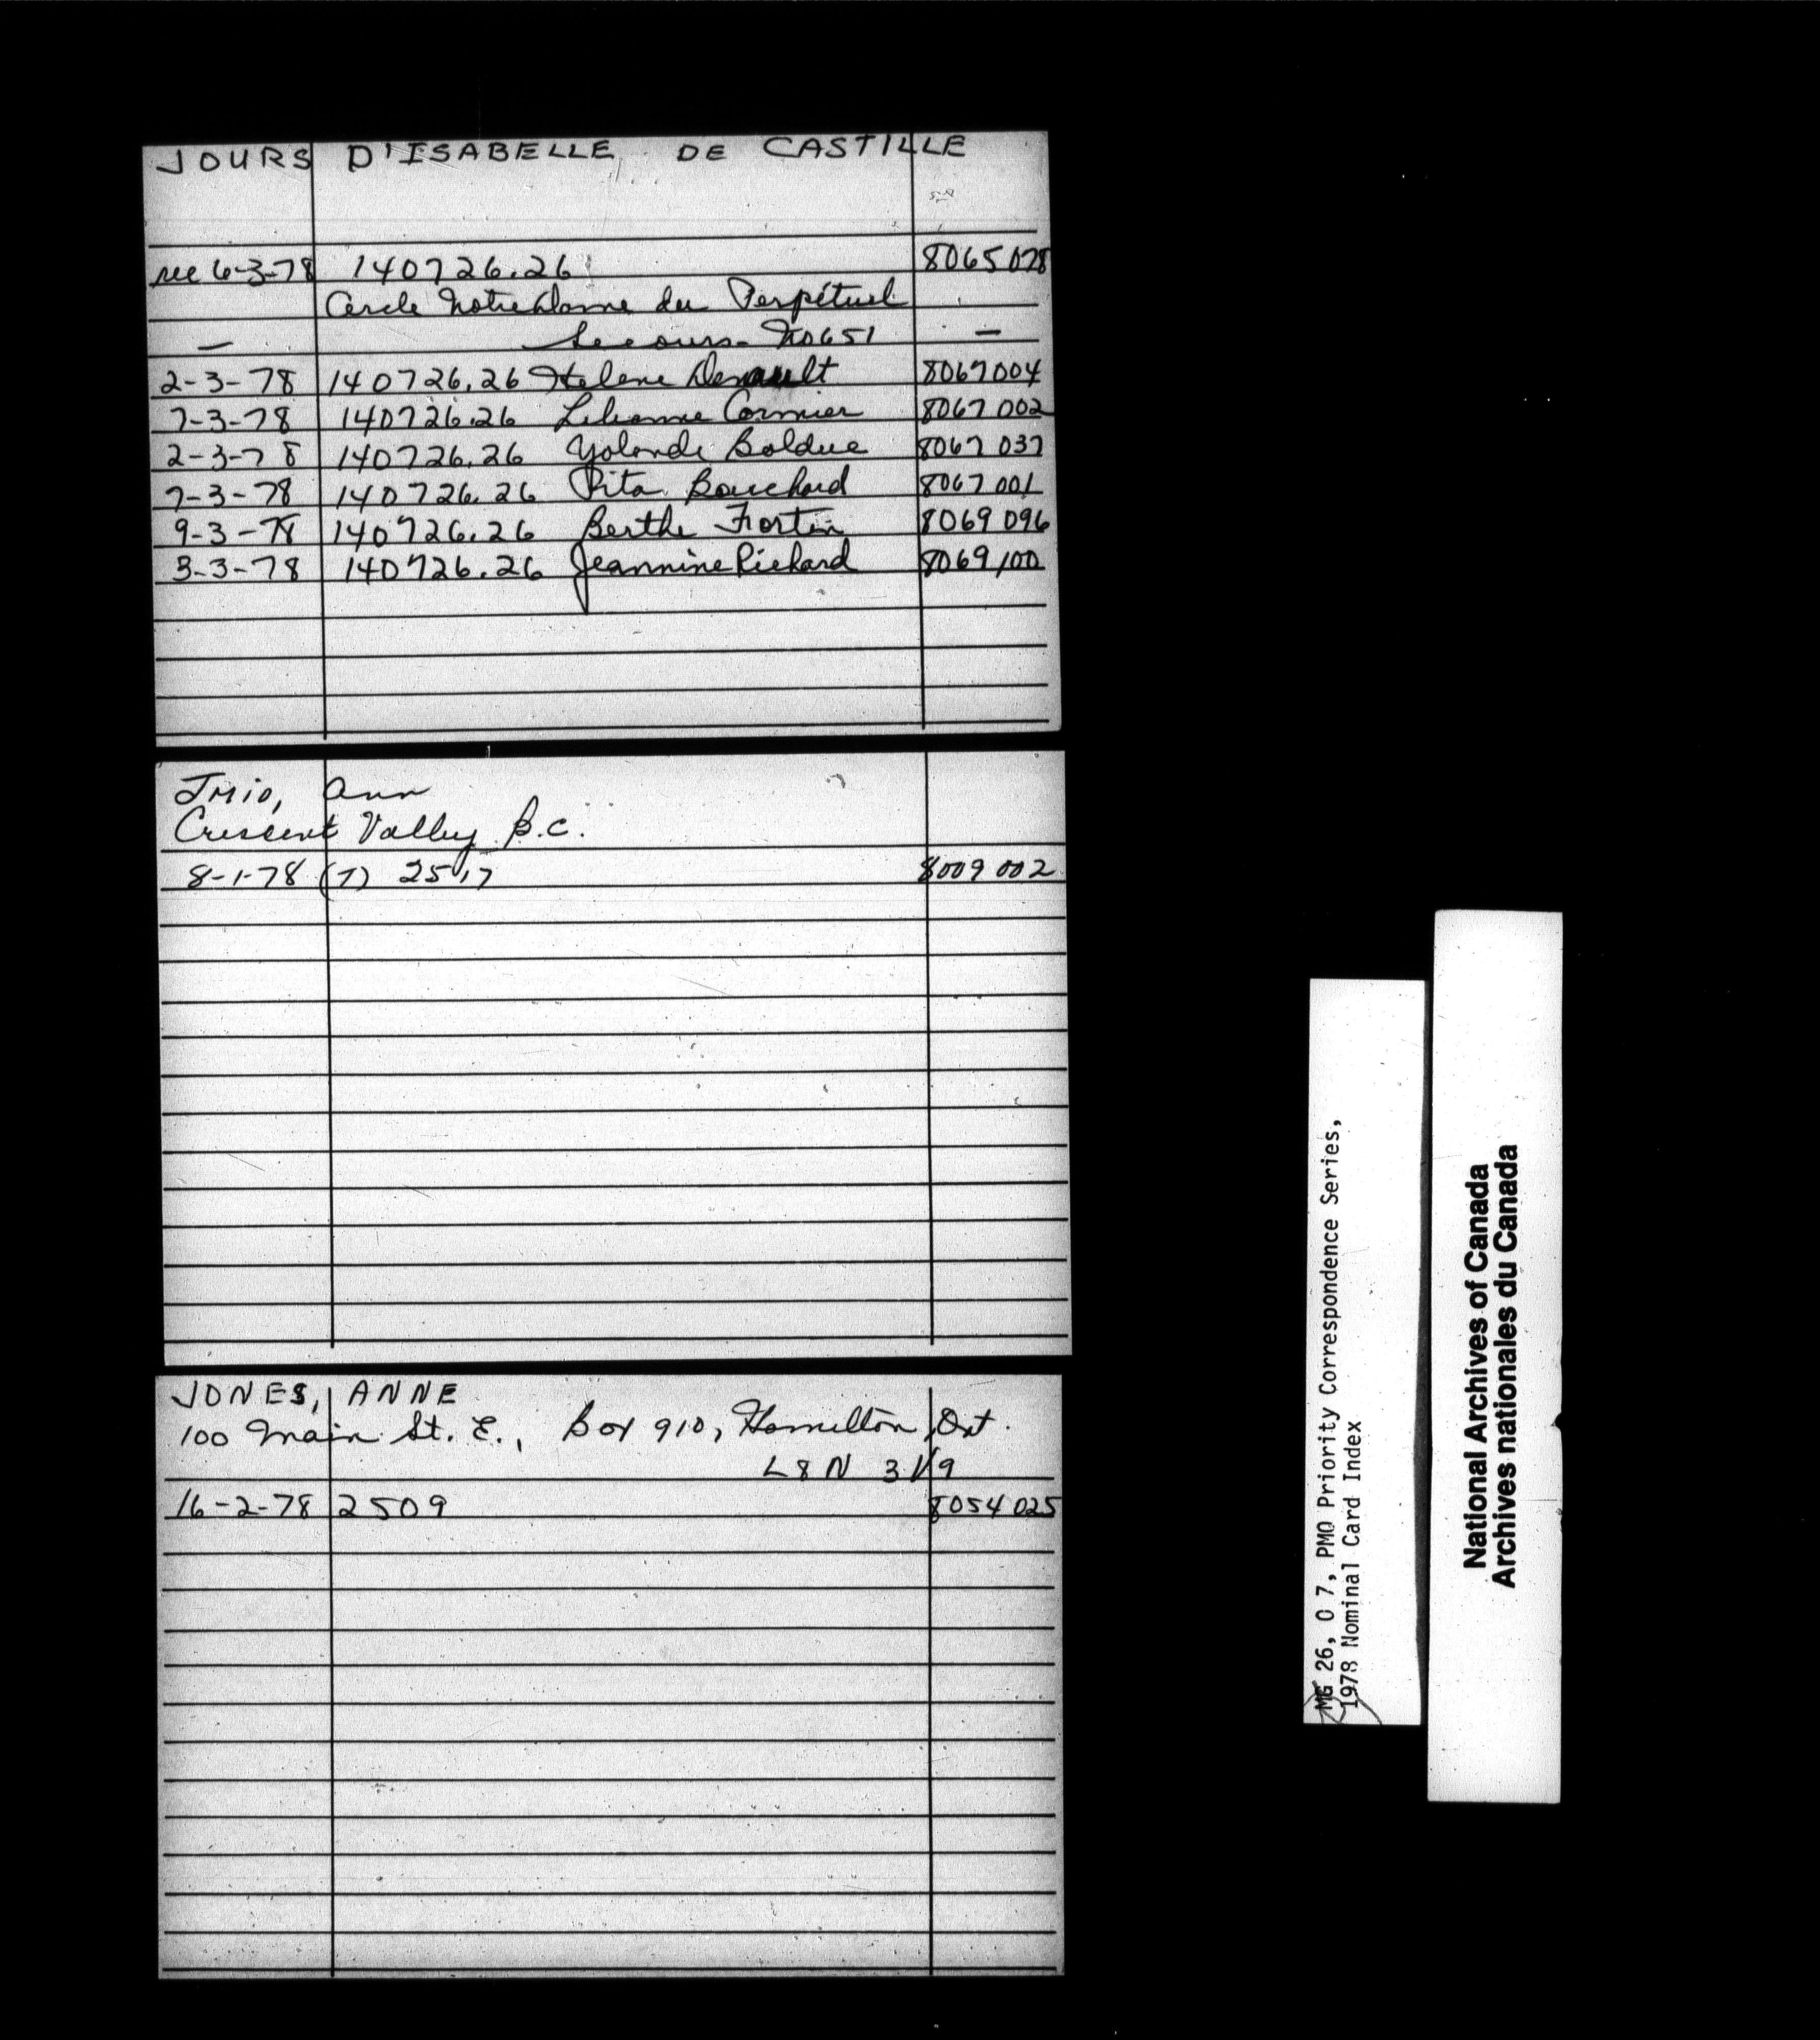 JOURS D'ISABELLE DE CASTILLE
rec 6-3-78 140726.26 8065078
Cercle Notre Dame du Perpétuel
— Secours - No 651 —
2-3-78 140726.26 Helene 8067004
7-3-78 140726.26 Lilianne Cormier 8067 002
2-3-78 140726.26 Yolande Bolduc 8067 037
7-3-78 140726.26 Rita Bouchard 8067 001
9-3-78 140726.26 Berthe Fortin 8069 096
3-3-78 140726.26 Jeannine Richard 8069 100
Ann
Crescent Valley B.C.
8-1-78 (T) 2517 8009 002
JONES, ANNE
100 Main St. E., Box 910, Hamilton, Ont.
L8N 3V9
16-2-78 2509 8054 025
MG 26, O 7, PMO Priority Correspondence Series,
1978 Nominal Card Index
National Archives of Canada
Archives nationales du Canada